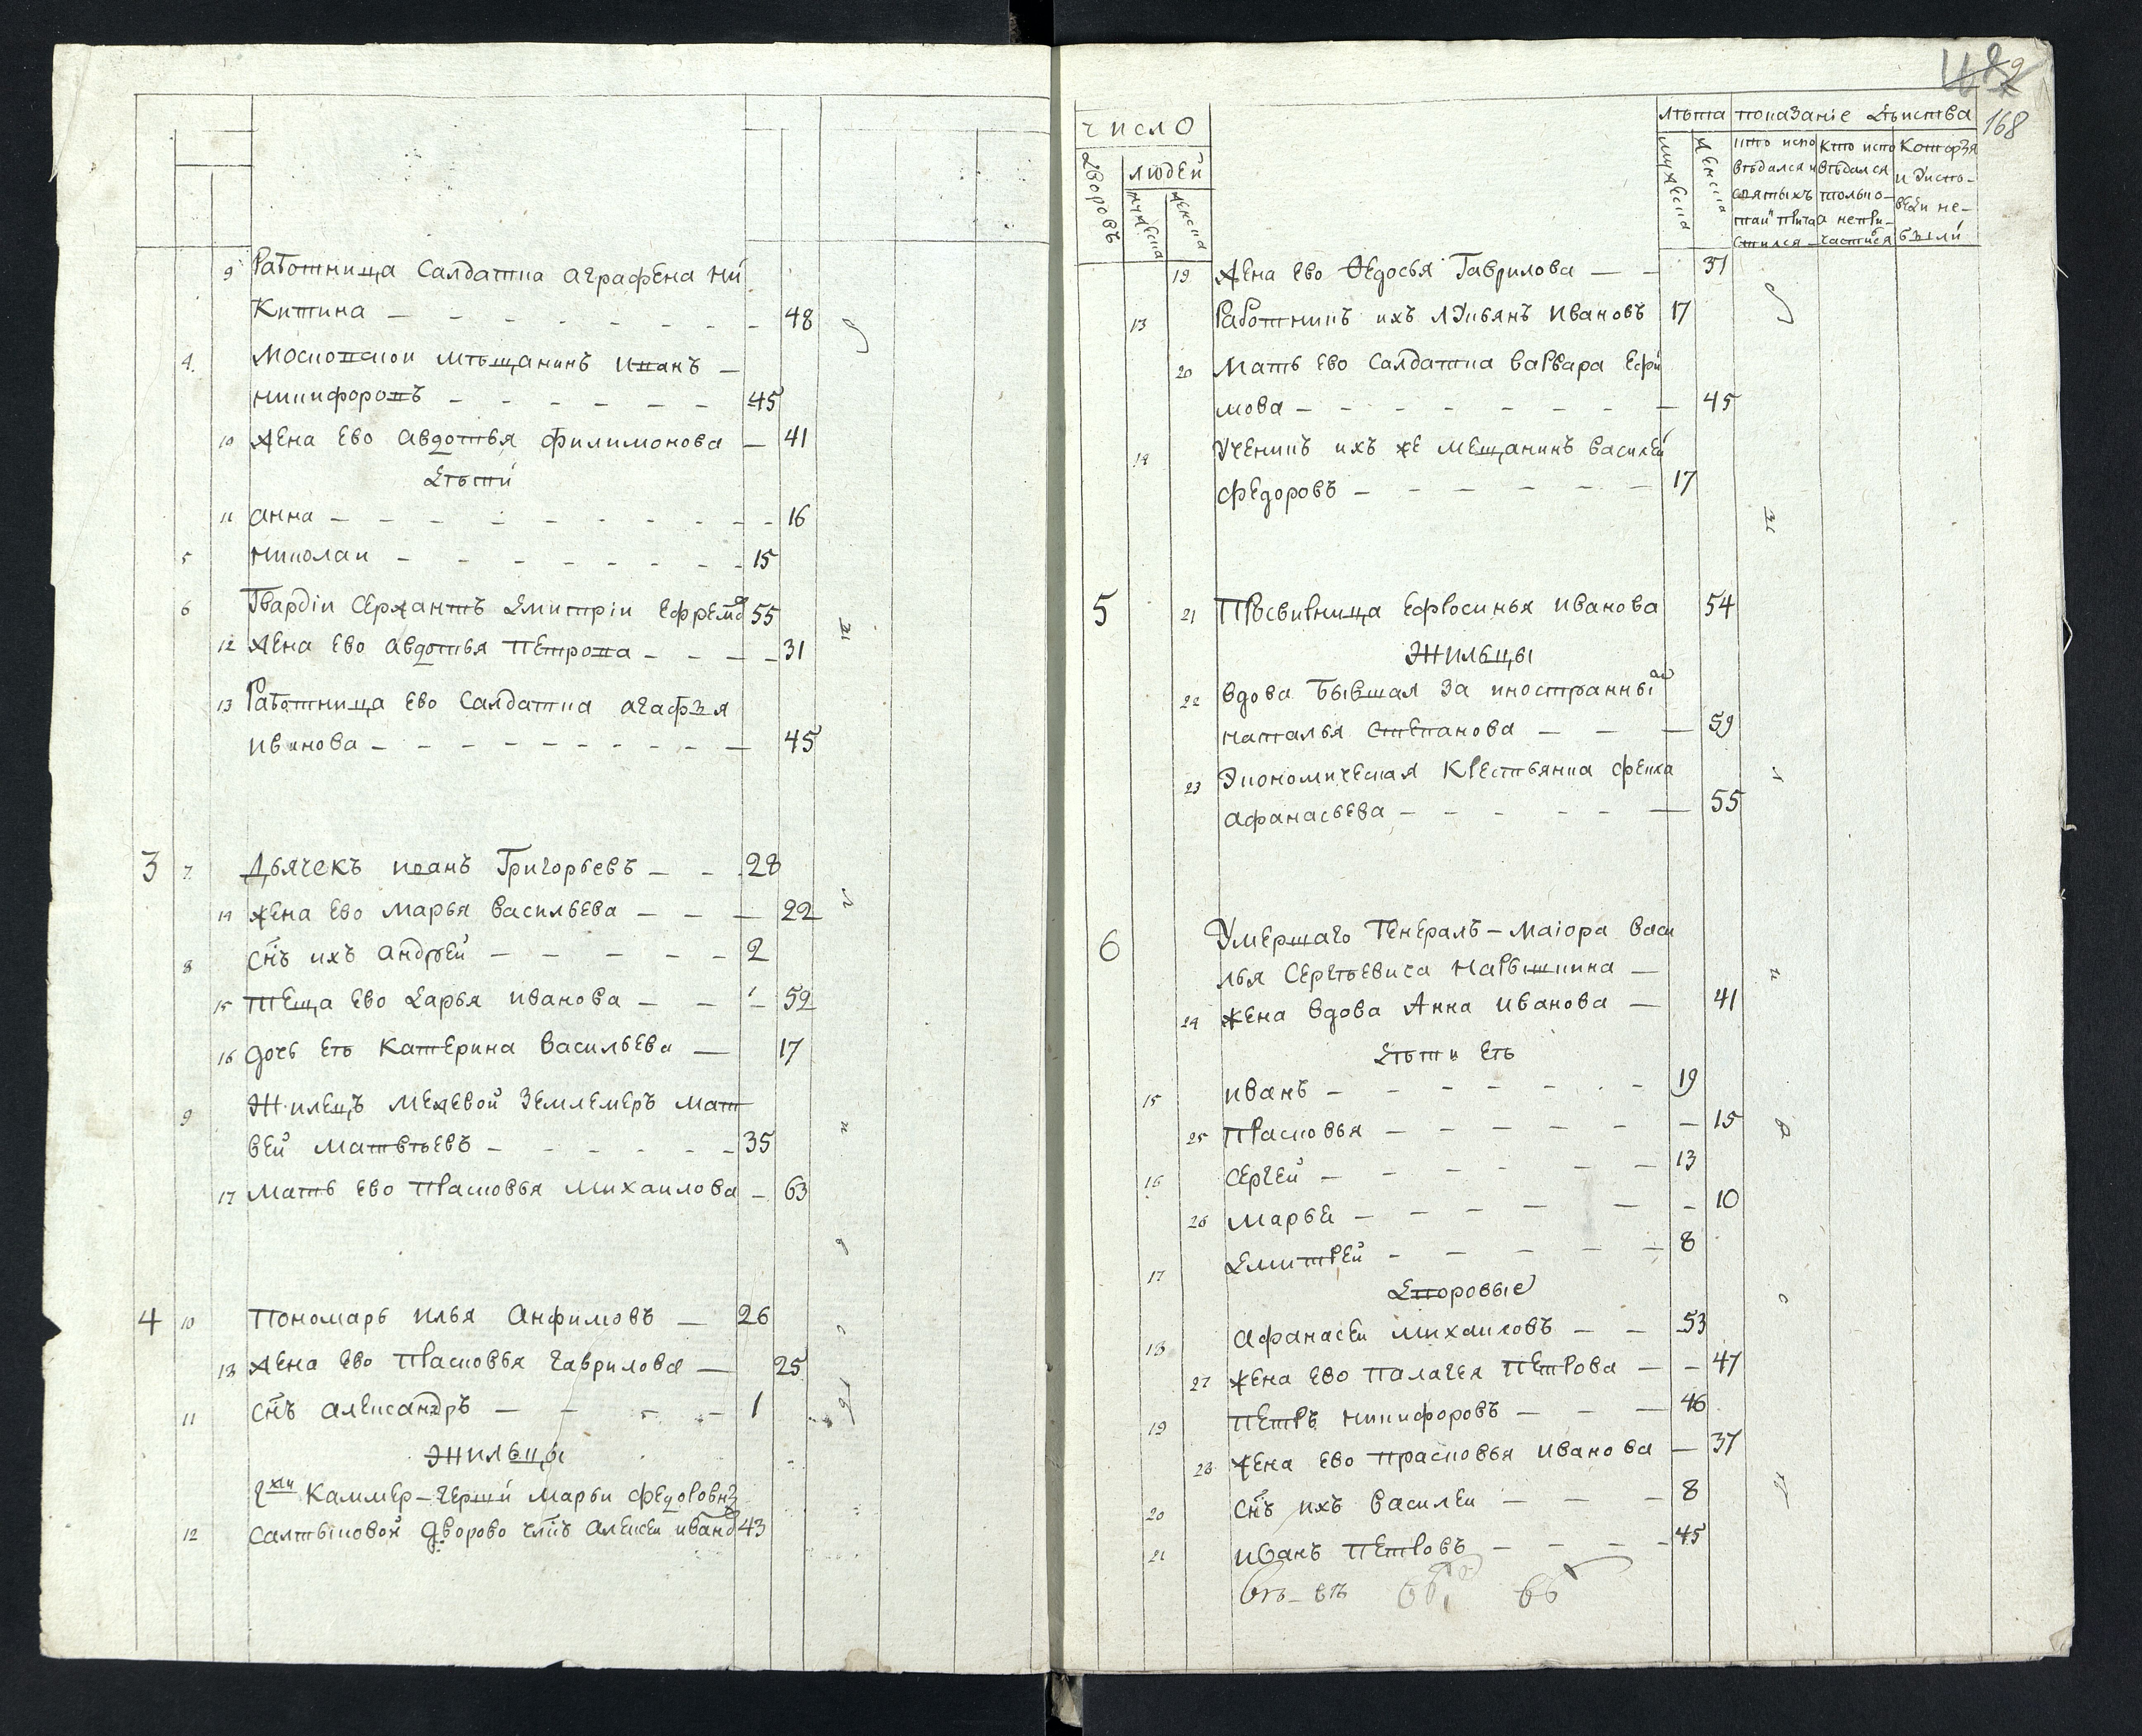 9 Работница Салдатка аграфена ни
Китина — 48
4. московской мѣщанинъ иванъ —
никифоровъ — 45
10 жена ево авдотья филимонова — 41
дѣти
11 анна — 16
5 николаи — 15
6 Гвардіи Сержантъ дмитріи Ефремо 55
12 жена ево авдотья петрова — 31
13 Работница ево Салдатка агафья
иванова — 45
3 7. Дьячекъ иванъ Григорьевъ — 28
14 жена ево марья васильева — 22
8 снъ ихъ андрей — 2
15 теща ево дарья иванова — 52
16 дочь ея Катерина васильева — 17
9 Жилецъ межевой землемеръ мат
вей матвѣевъ — 35
17 мать ево прасковья михаилова — 63
4 10 Пономарь илья анфимовъ — 26
18 жена ево прасковья гаврилова — 25
11 снъ александръ — 1
Жильцы
Каммер-герши марьи федоровны
12 салтыковой дворово члкъ алексеи ивано 43
168
число
дворовъ
людей
мужеска
женска
лѣта
мужеска
женска
показаніе дѣиства
кто испо
вѣдался и
святыхъ
таин прича
стился
кто испо
вѣдался
только
а не при
частился
Которыя
и у испо-
веди не-
были
19 жена ево Ѳедосья Гаврилова — 31
13 Работникъ ихъ лукьянъ ивановъ 17
20 мать ево Салдатка варвара ефи
мова — 45
14 ученикъ ихъ же мещанинъ василеи
федоровъ — 17
5 21 Просвирница ефросинья иванова 54
Жильцы
22 вдова бывшая за иностранны
наталья степанова — 59
23 экономическая крестьянка фекла
афанасьева — 55
6 умершаго генералъ-маіора васи
лья сергѣевича нарышкина —
24 жена вдова Анна иванова — 41
дѣти еѣ
15 иванъ — 19
25 прасковья — 15
16 сергей — 13
26 марья — 10
17 дмитрей — 8
дворовые
18 афанасеи михаиловъ — 53
27 жена ево палагея петрова — 47
19 петръ никифоровъ — 46
28 жена ево прасковья иванова — 37
20 снъ ихъ василеи — 8
21 иванъ петровъ — 45